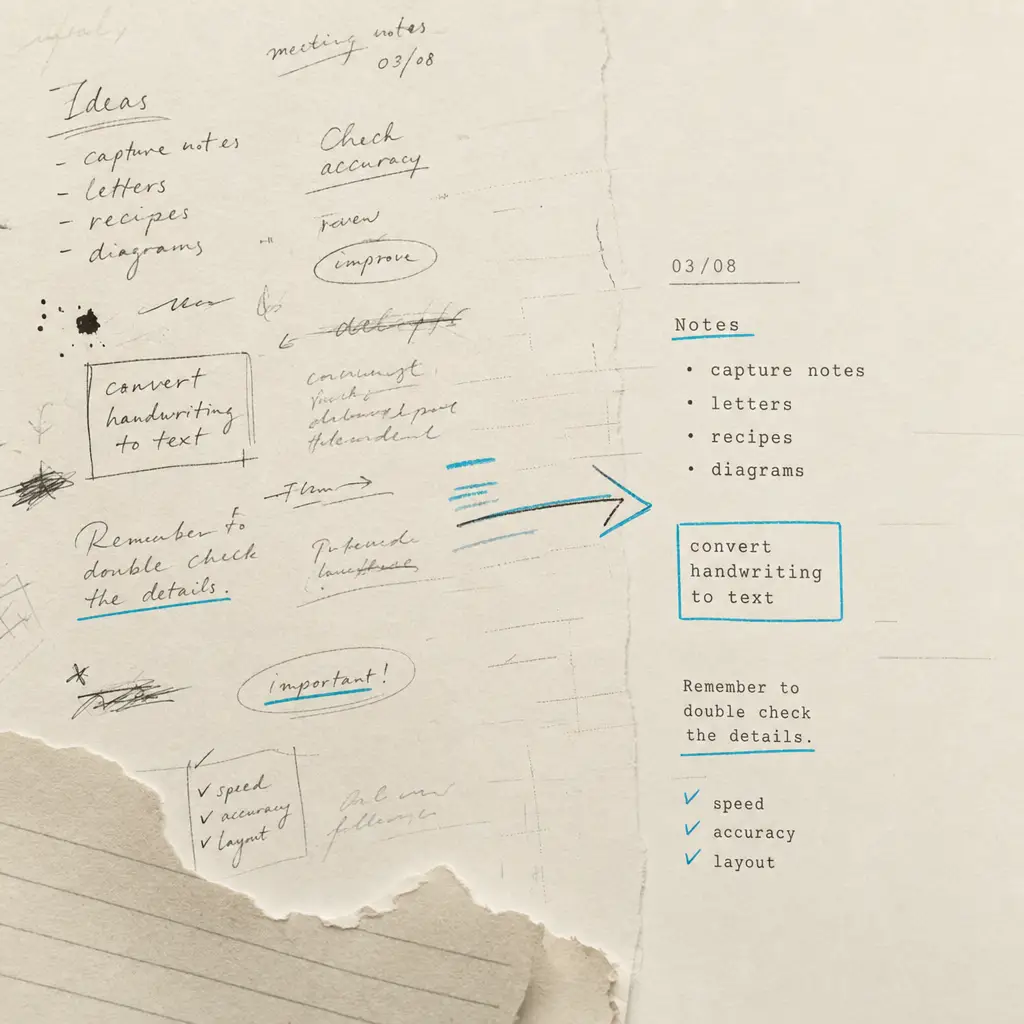 meeting notes
03/08
Ideas
- capture notes
- letters
- recipes
- diagrams
Check
accuracy
improve
convert
handwriting
to text
Remember to
double check
the details.
important!
✓ speed
✓ accuracy
✓ layout
03/08
Notes
• capture notes
• letters
• recipes
• diagrams
convert
handwriting
to text
Remember to
double check
the details.
✓ speed
✓ accuracy
✓ layout